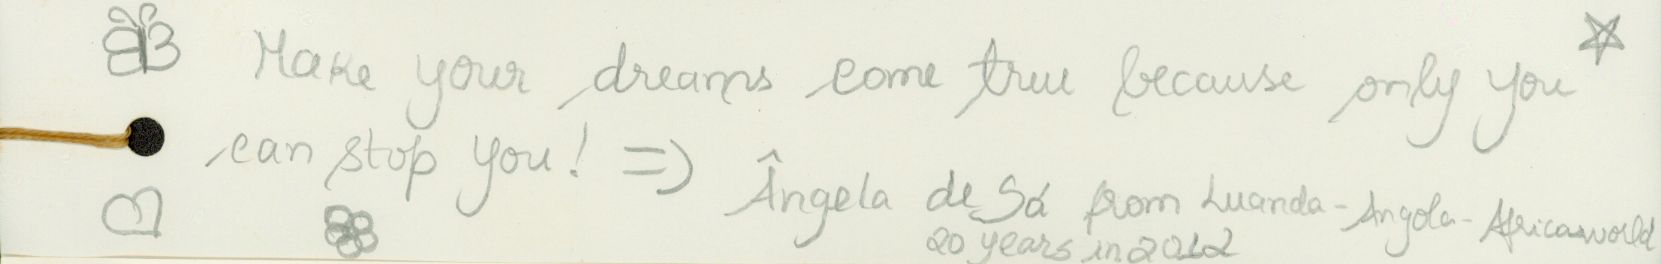 Make your dreams come true because only you
can stop you! =)
Ângela de Sá from Luanda - Angola - Africa world
20 years in 2012